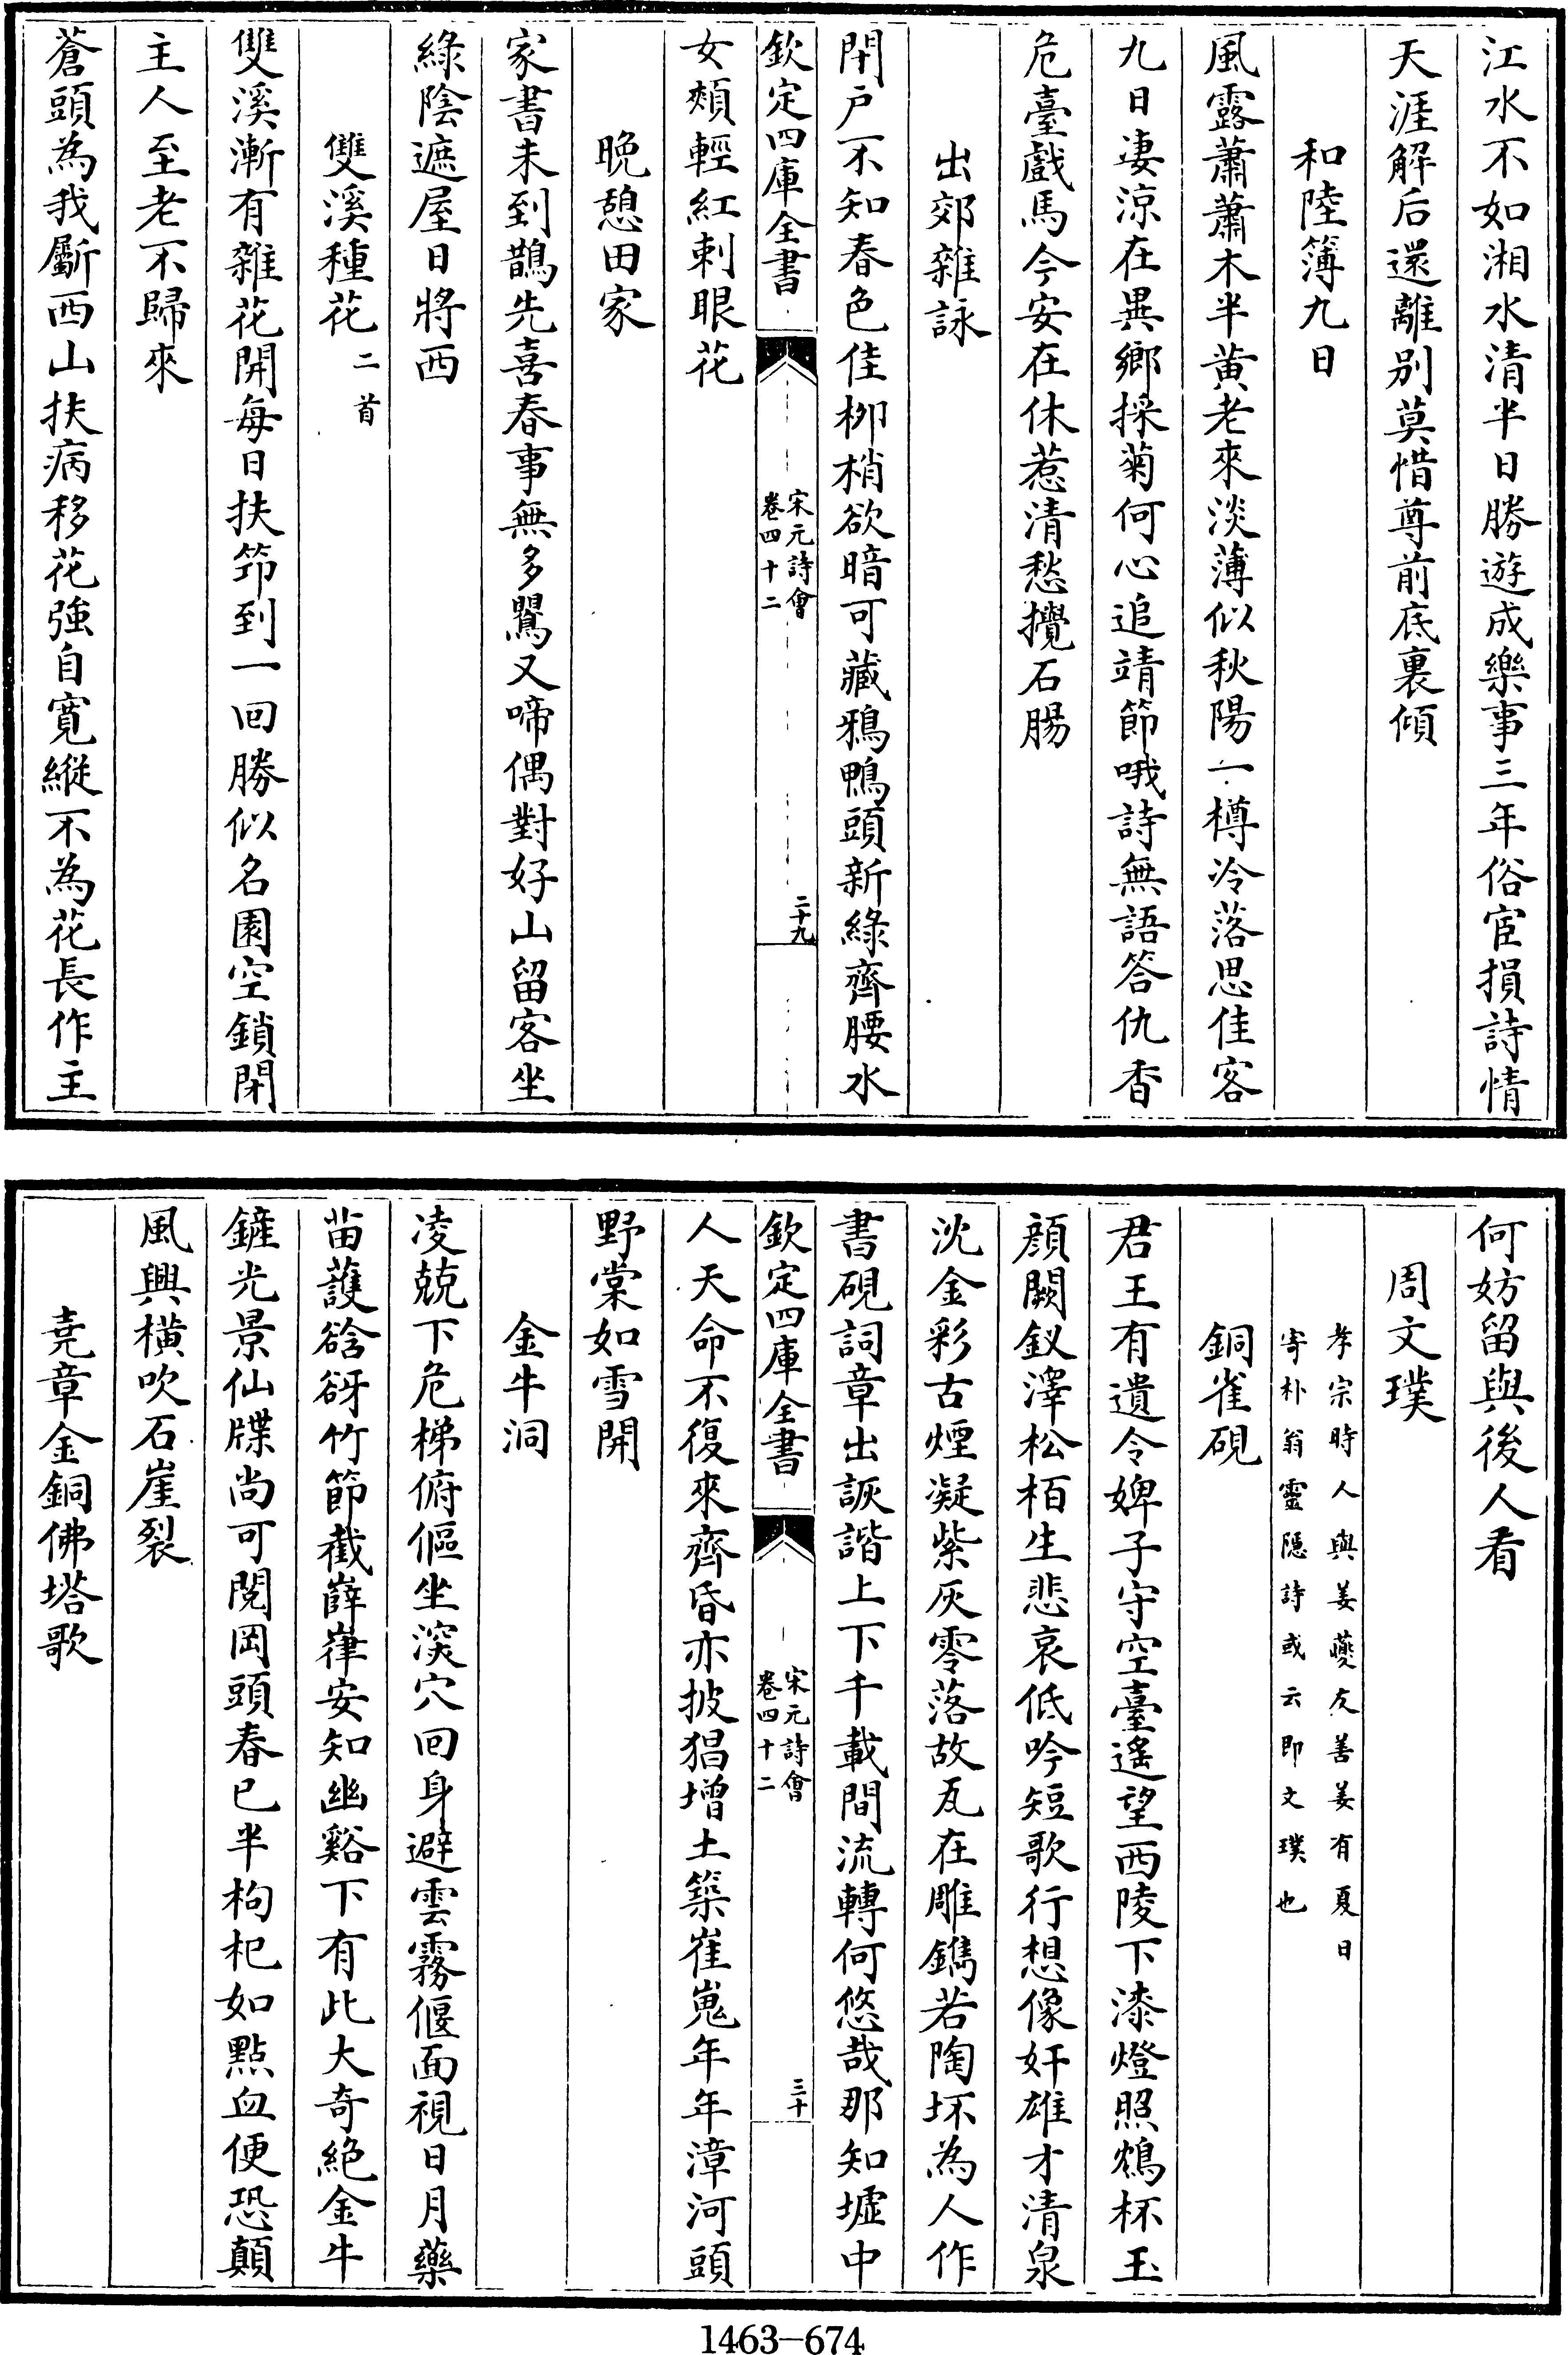 江水不如湘水清半日勝遊成樂事三年俗宦損詩情
天涯解后還離别莫惜尊前底裏傾
和陸簿九日
風露蕭蕭木半黄老來淡薄似秋陽一樽冷落思佳客
九日凄涼在異鄉採菊何心追靖節哦詩無語答仇香
危臺戲馬今安在休惹清愁攪石腸
出郊雜詠
閉户不知春色佳栁梢欲暗可藏鴉鴨頭新綠齊腰水
欽定四庫全書
宋元詩會
卷四十二
二十九
女頰輕紅刺眼花
晚憩田家
家書未到鵲先喜春事無多鶯又啼偶對好山留客坐
綠陰遮屋日將西
雙溪種花二首
雙溪漸有雜花開每日扶笻到一回勝似名園空鎖閉
主人至老不歸來
蒼頭為我斸西山扶病移花強自寛縱不為花長作主
何妨留與後人看
周文璞
孝宗時人與姜夔友善姜有夏日
寄朴翁靈隱詩或云即文璞也
銅雀硯
君王有遺令婢子守空臺遙望西陵下漆燈照鴆杯玉
顔闕釵澤松栢生悲哀低吟短歌行想像奸雄才清泉
沈金彩古煙凝紫灰零落故瓦在雕鐫若陶坏為人作
書硯詞章出詼諧上下千載間流轉何悠哉那知墟中
欽定四庫全書
宋元詩會
卷四十二
三十
人天命不復來齊昏亦披猖增土築崔嵬年年漳河頭
野棠如雪開
金牛洞
凌兢下危梯俯傴坐深穴回身避雲霧偃面視日月藥
苗護谽谺竹節截嶭嵂安知幽谿下有此大奇絶金牛
鏟光景仙牒尚可閱岡頭春已半枸杞如點血便恐顛
風興橫吹石崖裂
堯章金銅佛塔歌
1463—674